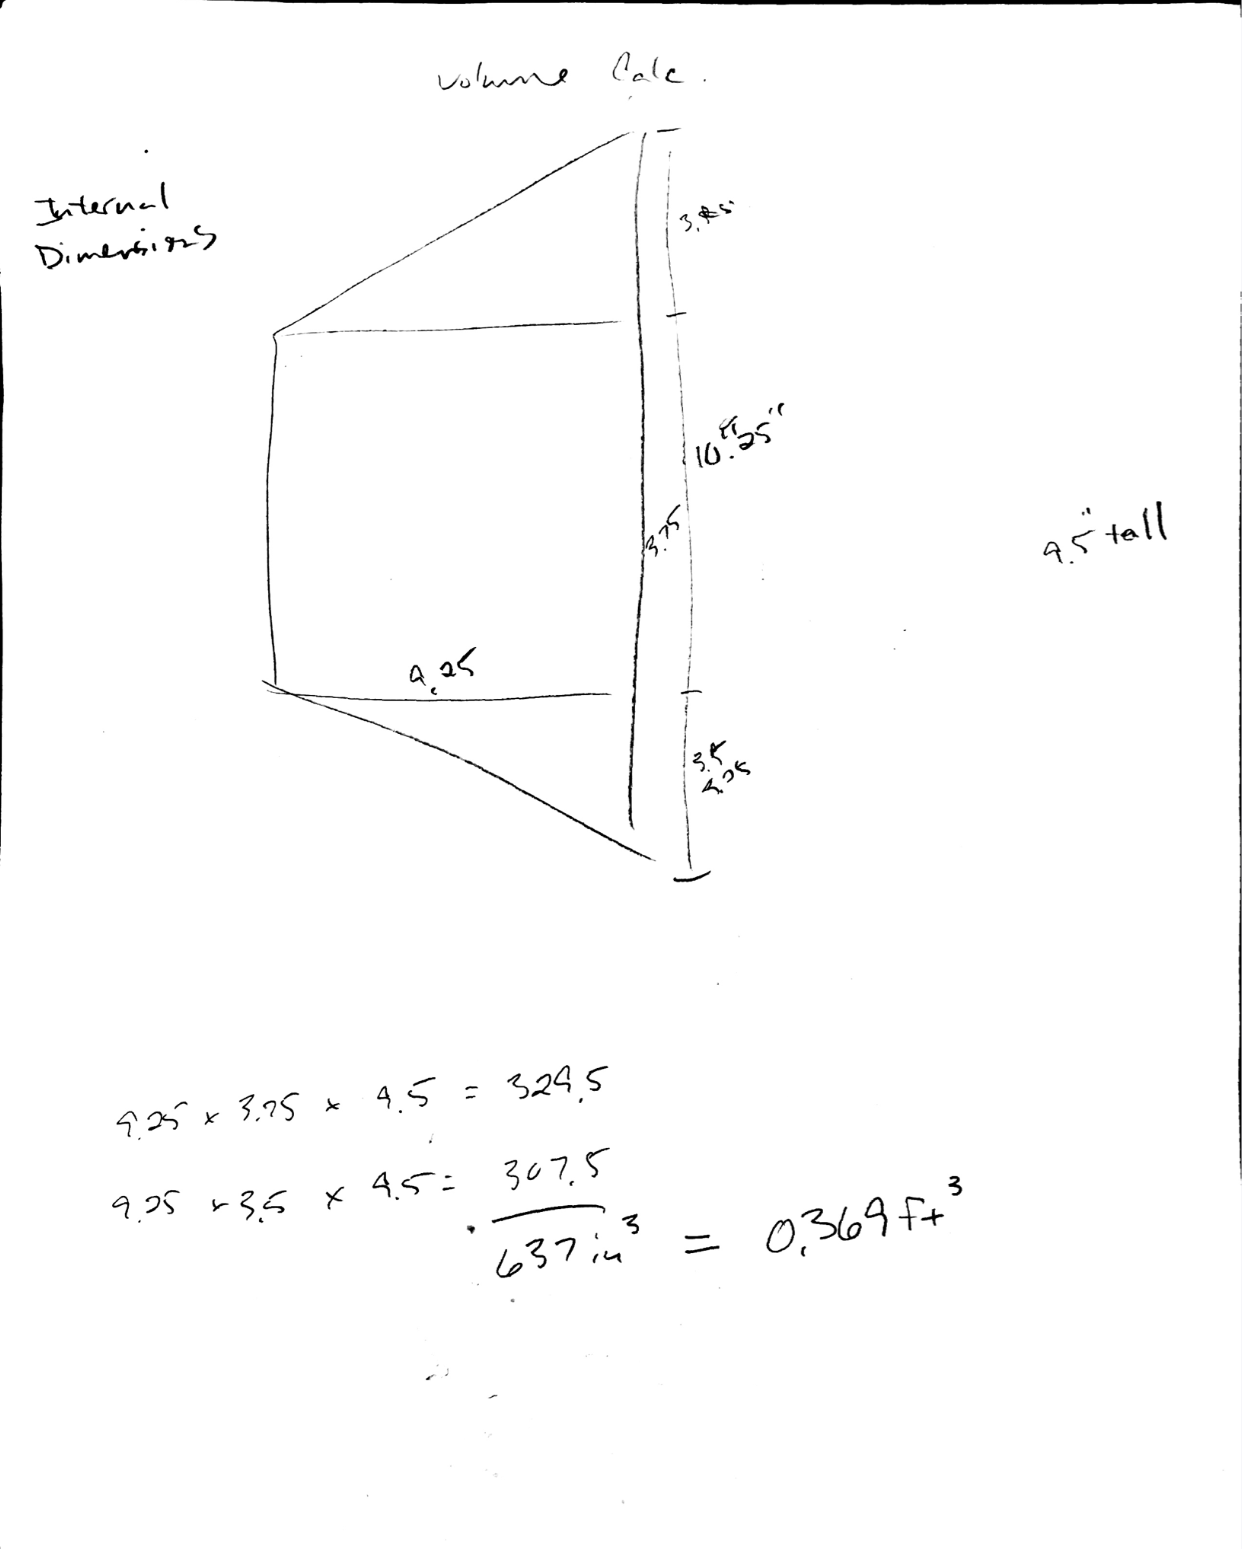 Volume Calc.
Internal
Dimensions
10.25"
3.75
9.5" tall
9.25
3.5
9.25 x 3.75 x 9.5 = 329.5
9.25 x 3.5 x 9.5 = 307.5
637 in³ = 0.369 ft³